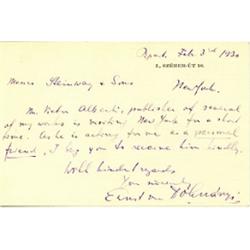 Budapest, Feb 3rd 1930
I, SZÉHER-ÚT 56.
Messrs Steinway & Sons
New York.
Mr. Victor Alberti, publisher of several
of my works is visiting New York for a short
time. As he is acting for me as a personal
friend, I beg you to receive him kindly.
With kindest regards
Yours sincerely
Ernst von Dohnányi